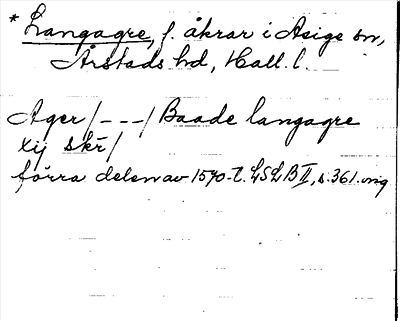 * Langagre, f. åkrar i Asige sn,
Årstads hd, Hall. l.
Ager /---/ Baade langagre
xij skr̄/
förra delen av 1570-t. LSLB II, s. 361. orig